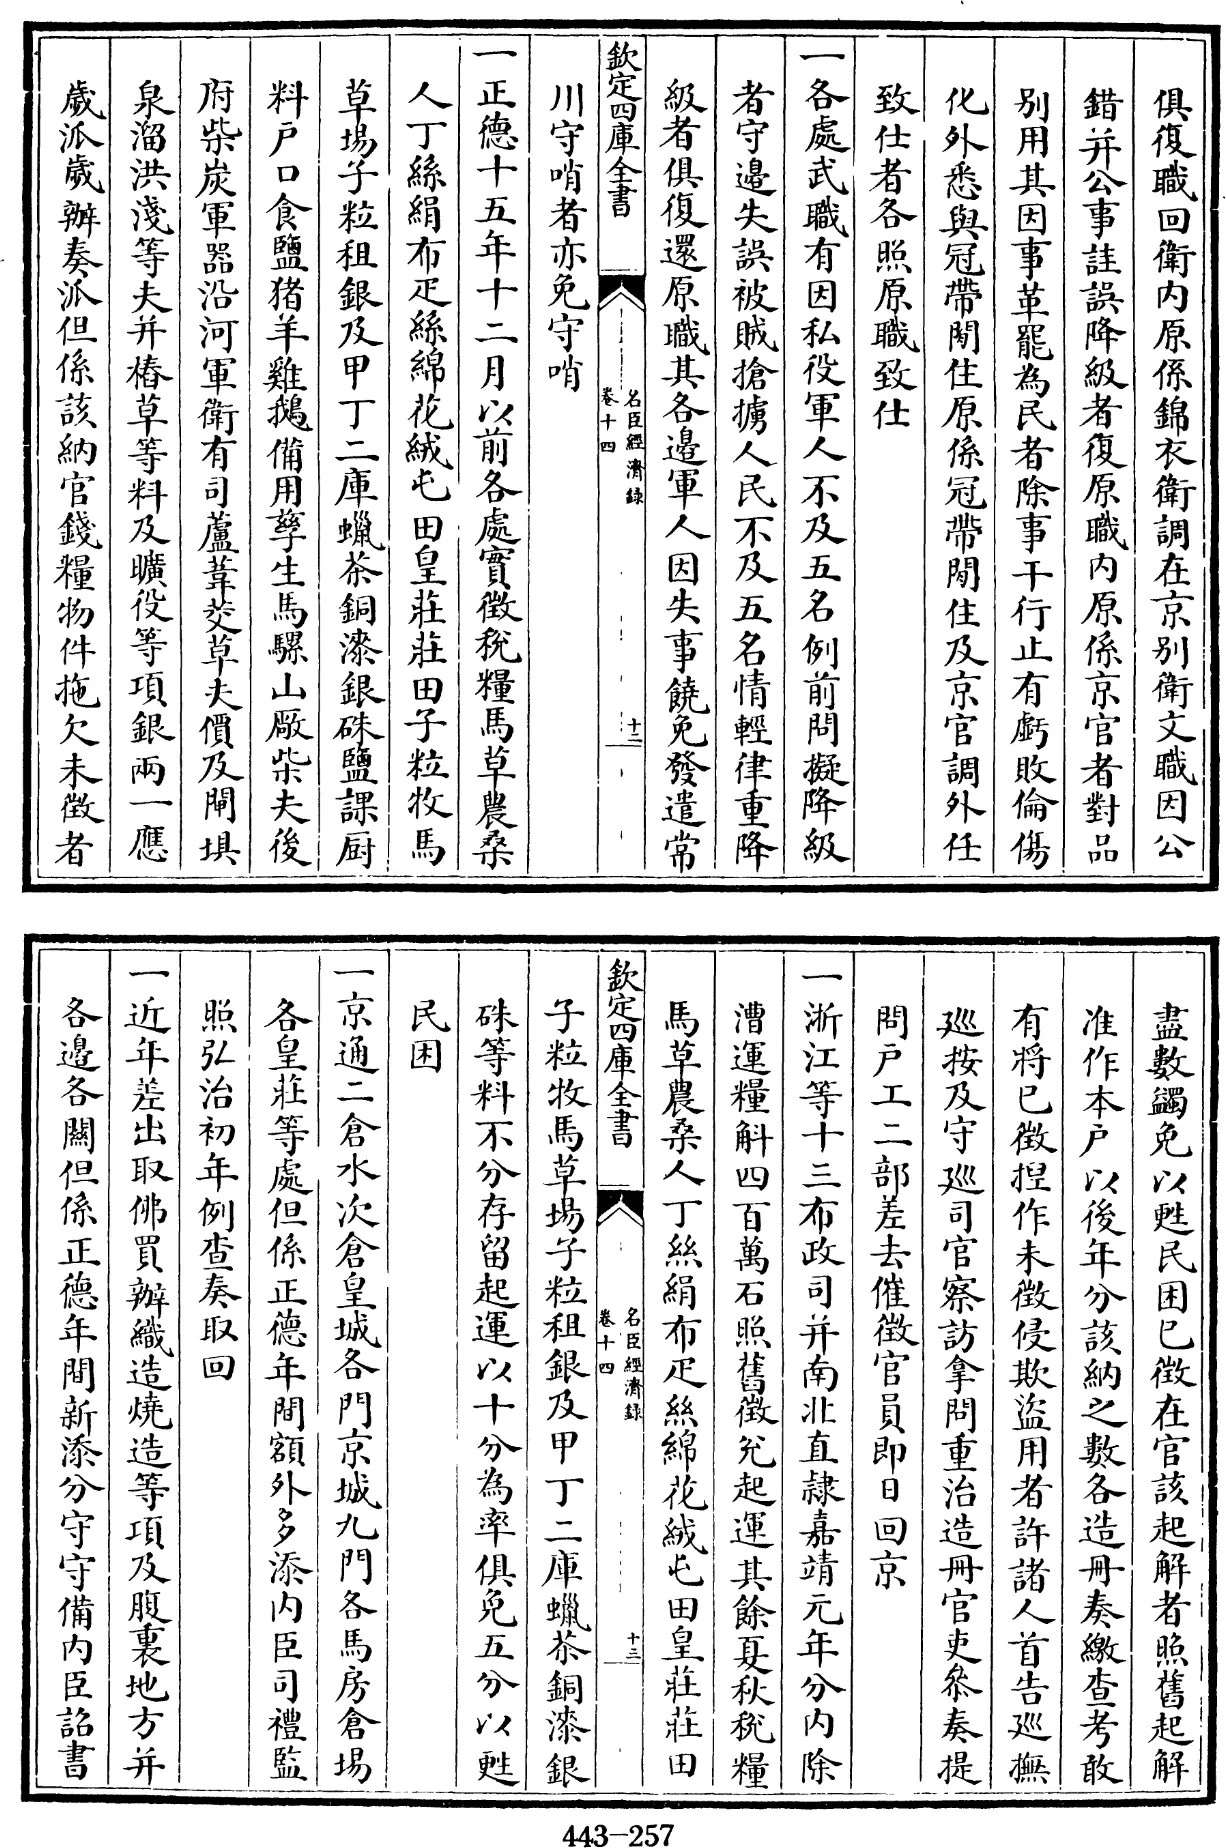 俱復職回衛内原係錦衣衛調在京别衛文職因公
錯并公事詿誤降級者復原職内原係京官者對品
别用其因事革罷為民者除事干行止有虧敗倫傷
化外悉與冠帶閒住原係冠帶閒住及京官調外任
致仕者各照原職致仕
一各處武職有因私役軍人不及五名例前問擬降級
者守邊失誤被賊搶擄人民不及五名情輕律重降
級者俱復還原職其各邊軍人因失事饒免發遣常
欽定四庫全書
名臣經濟録
卷十四
十二
川守哨者亦免守哨
一正德十五年十二月以前各處實徵稅糧馬草農桑
人丁絲絹布疋絲綿花絨屯田皇莊莊田子粒牧馬
草場子粒租銀及甲丁二庫蠟茶銅漆銀硃鹽課厨
料戶口食鹽猪羊雞鵝備用孳生馬騾山厰柴夫後
府柴炭軍器沿河軍衛有司蘆葦茭草夫價及閘埧
泉溜洪淺等夫并樁草等料及曠役等項銀兩一應
歲派歲辦奏派但係該納官錢糧物件拖欠未徴者
盡數蠲免以甦民困已徴在官該起解者照舊起解
准作本户以後年分該納之數各造冊奏繳查考敢
有將已徴捏作未徴侵欺盜用者許諸人首告巡撫
巡按及守巡司官察訪拿問重治造冊官吏叅奏提
問戶工二部差去催徴官員即日回京
一浙江等十三布政司并南北直隷嘉靖元年分内除
漕運糧斛四百萬石照舊徴兊起運其餘夏秋稅糧
馬草農桑人丁絲絹布疋絲綿花絨屯田皇莊莊田
欽定四庫全書
名臣經濟録
卷十四
十三
子粒牧馬草場子粒租銀及甲丁二庫蠟茶銅漆銀
硃等料不分存留起運以十分為率俱免五分以甦
民困
一京通二倉水次倉皇城各門京城九門各馬房倉場
各皇莊等處但係正德年間額外多添内臣司禮監
照弘治初年例查奏取回
一近年差出取佛買辦織造燒造等項及腹裏地方并
各邊各關但係正德年間新添分守守備内臣詔書
443-257